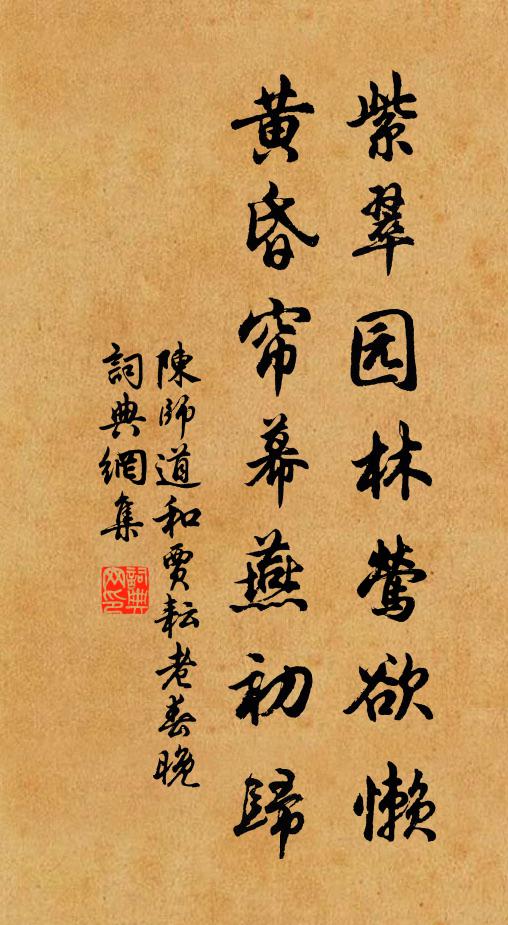 紫翠园林莺欲懒
黄昏帘幕燕初歸
陳師道和賈耘老春晚
詞典網集
詞典网印